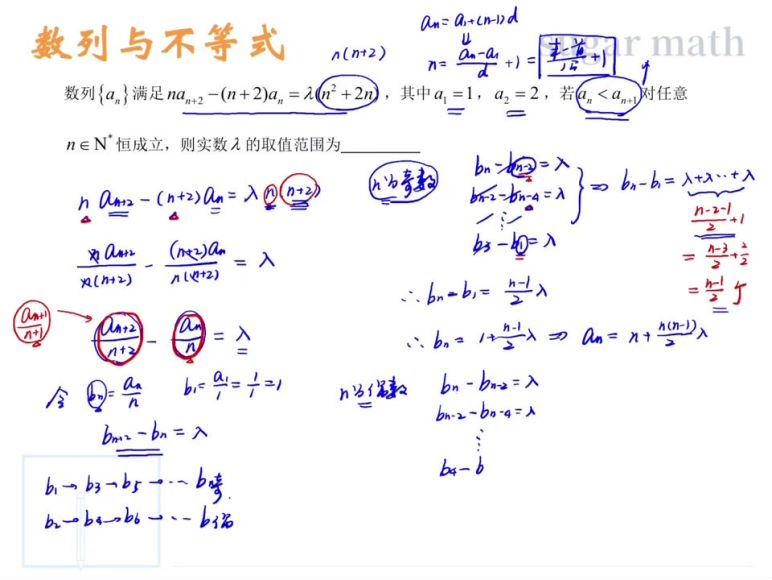 数列与不等式
sugar math
aₙ = a₁+(n-1)d
⇓
n = (aₙ-a₁)/d + 1 =
n(n+2)
数列{aₙ}满足naₙ₊₂−(n+2)aₙ=λ(n²+2n)，其中a₁=1，a₂=2，若aₙ<aₙ₊₁对任意
n∈N*恒成立，则实数λ的取值范围为________
n aₙ₊₂ - (n+2)aₙ = λ n(n+2)
n aₙ₊₂/n(n+2) - (n+2)aₙ/n(n+2) = λ
aₙ₊₁/n+1 → aₙ₊₂/n+2 - aₙ/n = λ
令 bₙ = aₙ/n b₁ = a₁/1 = 1/1 = 1
bₙ₊₂ - bₙ = λ
b₁→b₃→b₅→…b奇
b₂→b₄→b₆→…b偶
n为奇数
bₙ - bₙ₋₂ = λ
bₙ₋₂ - bₙ₋₄ = λ
⋮
b₃ - b₁ = λ
⇒ bₙ - b₁ = λ+λ…+λ
(n-2-1)/2 + 1
= (n-3)/2 + 2/2
= (n-1)/2 个
∴ bₙ - b₁ = (n-1)/2 λ
∴ bₙ = 1 + (n-1)/2 λ ⇒ aₙ = n + n(n-1)/2 λ
n为偶数
bₙ - bₙ₋₂ = λ
bₙ₋₂ - bₙ₋₄ = λ
⋮
b₄ - b